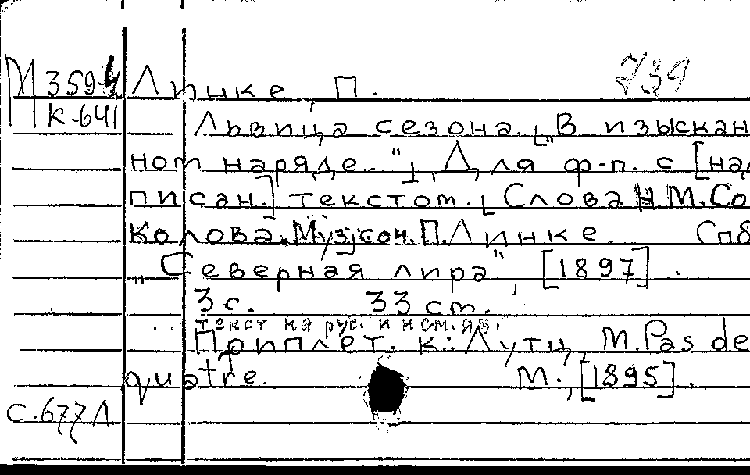 М 359-4 Линке, П. 739
К-641 Львица сезона. [„В изыскан
ном наряде..."], Для ф-п. с [над
писан.] текстом. [Слова Н.М.Со
колова. Муз. соч. П.Линке. Спб
„Северная лира", [1897].
3 с. 33 см.
текст на рус. и нем. яз.
Приплет. к: Лутц, М. Pas de
quatre. М., [1895].
с.677Л